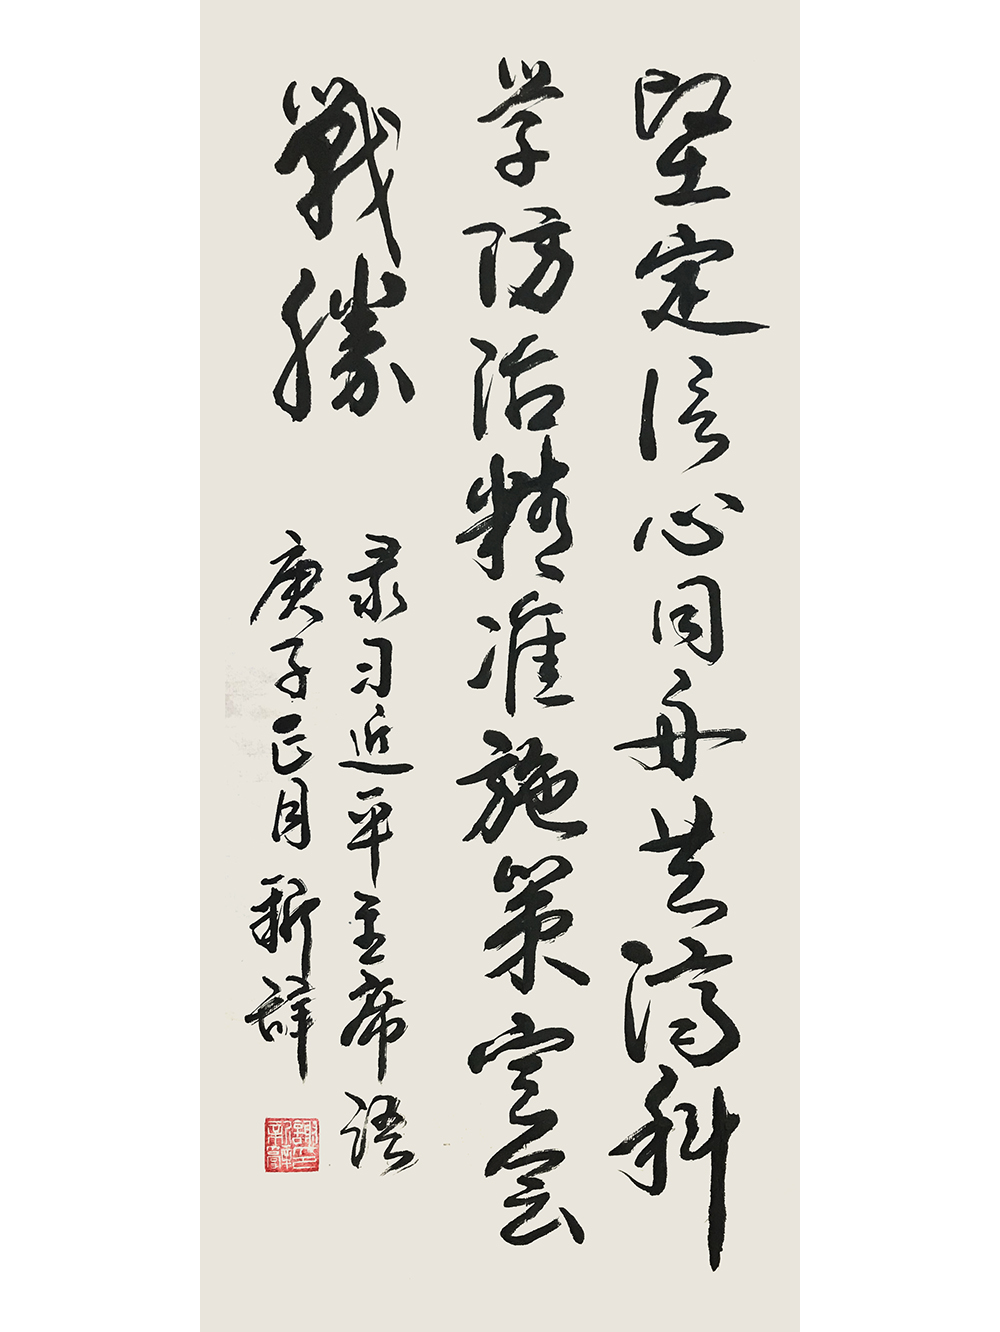 坚定信心同舟共济科
学防治精准施策定会
戰勝
录习近平主席语
庚子正月新